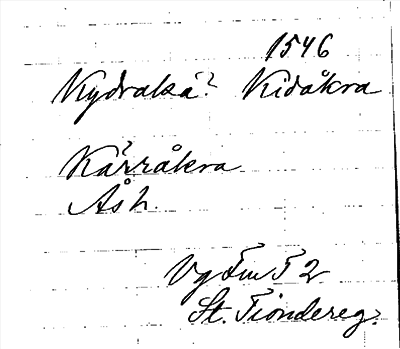 1546
Kydraka? Kidåkra
?
Kärråkra
Ås h.
Vg Fm F 2
St. Tiondereg.